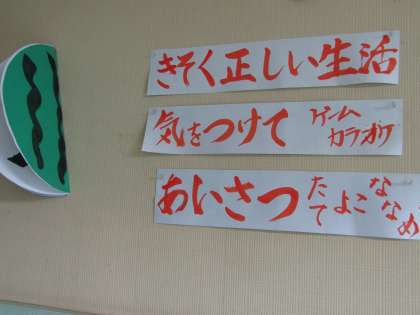 きそく正しい生活
気をつけて ゲーム カラオケ
あいさつ たて よこ ななめ